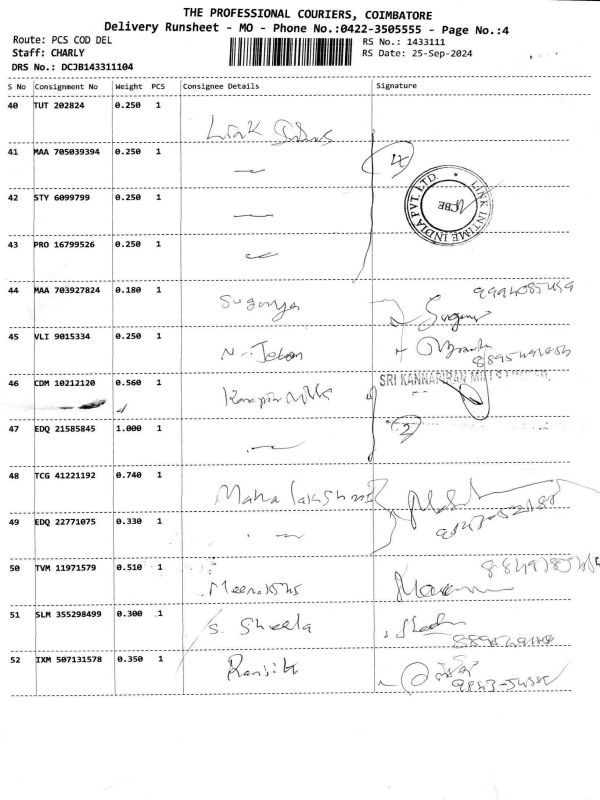 THE PROFESSIONAL COURIERS, COIMBATORE
Delivery Runsheet - MO - Phone No.:0422-3505555 - Page No.:4
Route: PCS COD DEL
RS No.: 1433111
Staff: CHARLY
RS Date: 25-Sep-2024
DRS No.: DCJB143311104
S No Consignment No Weight PCS Consignee Details Signature
40 TUT 202824 0.250 1
Link
41 MAA 705039394 0.250 1
42 STY 6099799 0.250 1
LINK INTIME INDIA PVT. LTD. * CBE
43 PRO 16799526 0.250 1
44 MAA 703927824 0.180 1 Suganya
45 VLI 9015334 0.250 1
46 CDM 10212120 0.560 1 SRI KANNAPIRAN MILLS LIMITED.
47 EDQ 21585845 1.000 1
48 TCG 41221192 0.740 1 Mahalakshmi
49 EDQ 22771075 0.330 1
50 TVM 11971579 0.510 1
51 SLM 355298499 0.300 1 S. Sheela
52 IXM 507131578 0.350 1